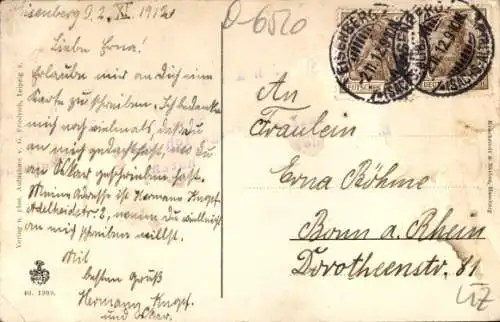 Eisenberg d. 2. XI. 1912
D-6520
Liebe Erna!
Erlaube mir an dich eine
Karte zu schreiben. Ich bedanke
mich noch vielmals, daß du
an mich gedacht hast, als du
an Oskar geschrieben hast.
Meine Adresse ist Hermann Knopf
Adelheidstr. 8, wenn du vielleicht
an mich schreiben willst.
Mit
besten Gruß
Hermann Knopf
und Oskar.
An
Fräulein
Erna Böhme
Bonn a. Rhein
Dorotheenstr. 81
Verlag u. phot. Aufnahme v. G. Friedrich, Leipzig
40. 1980.